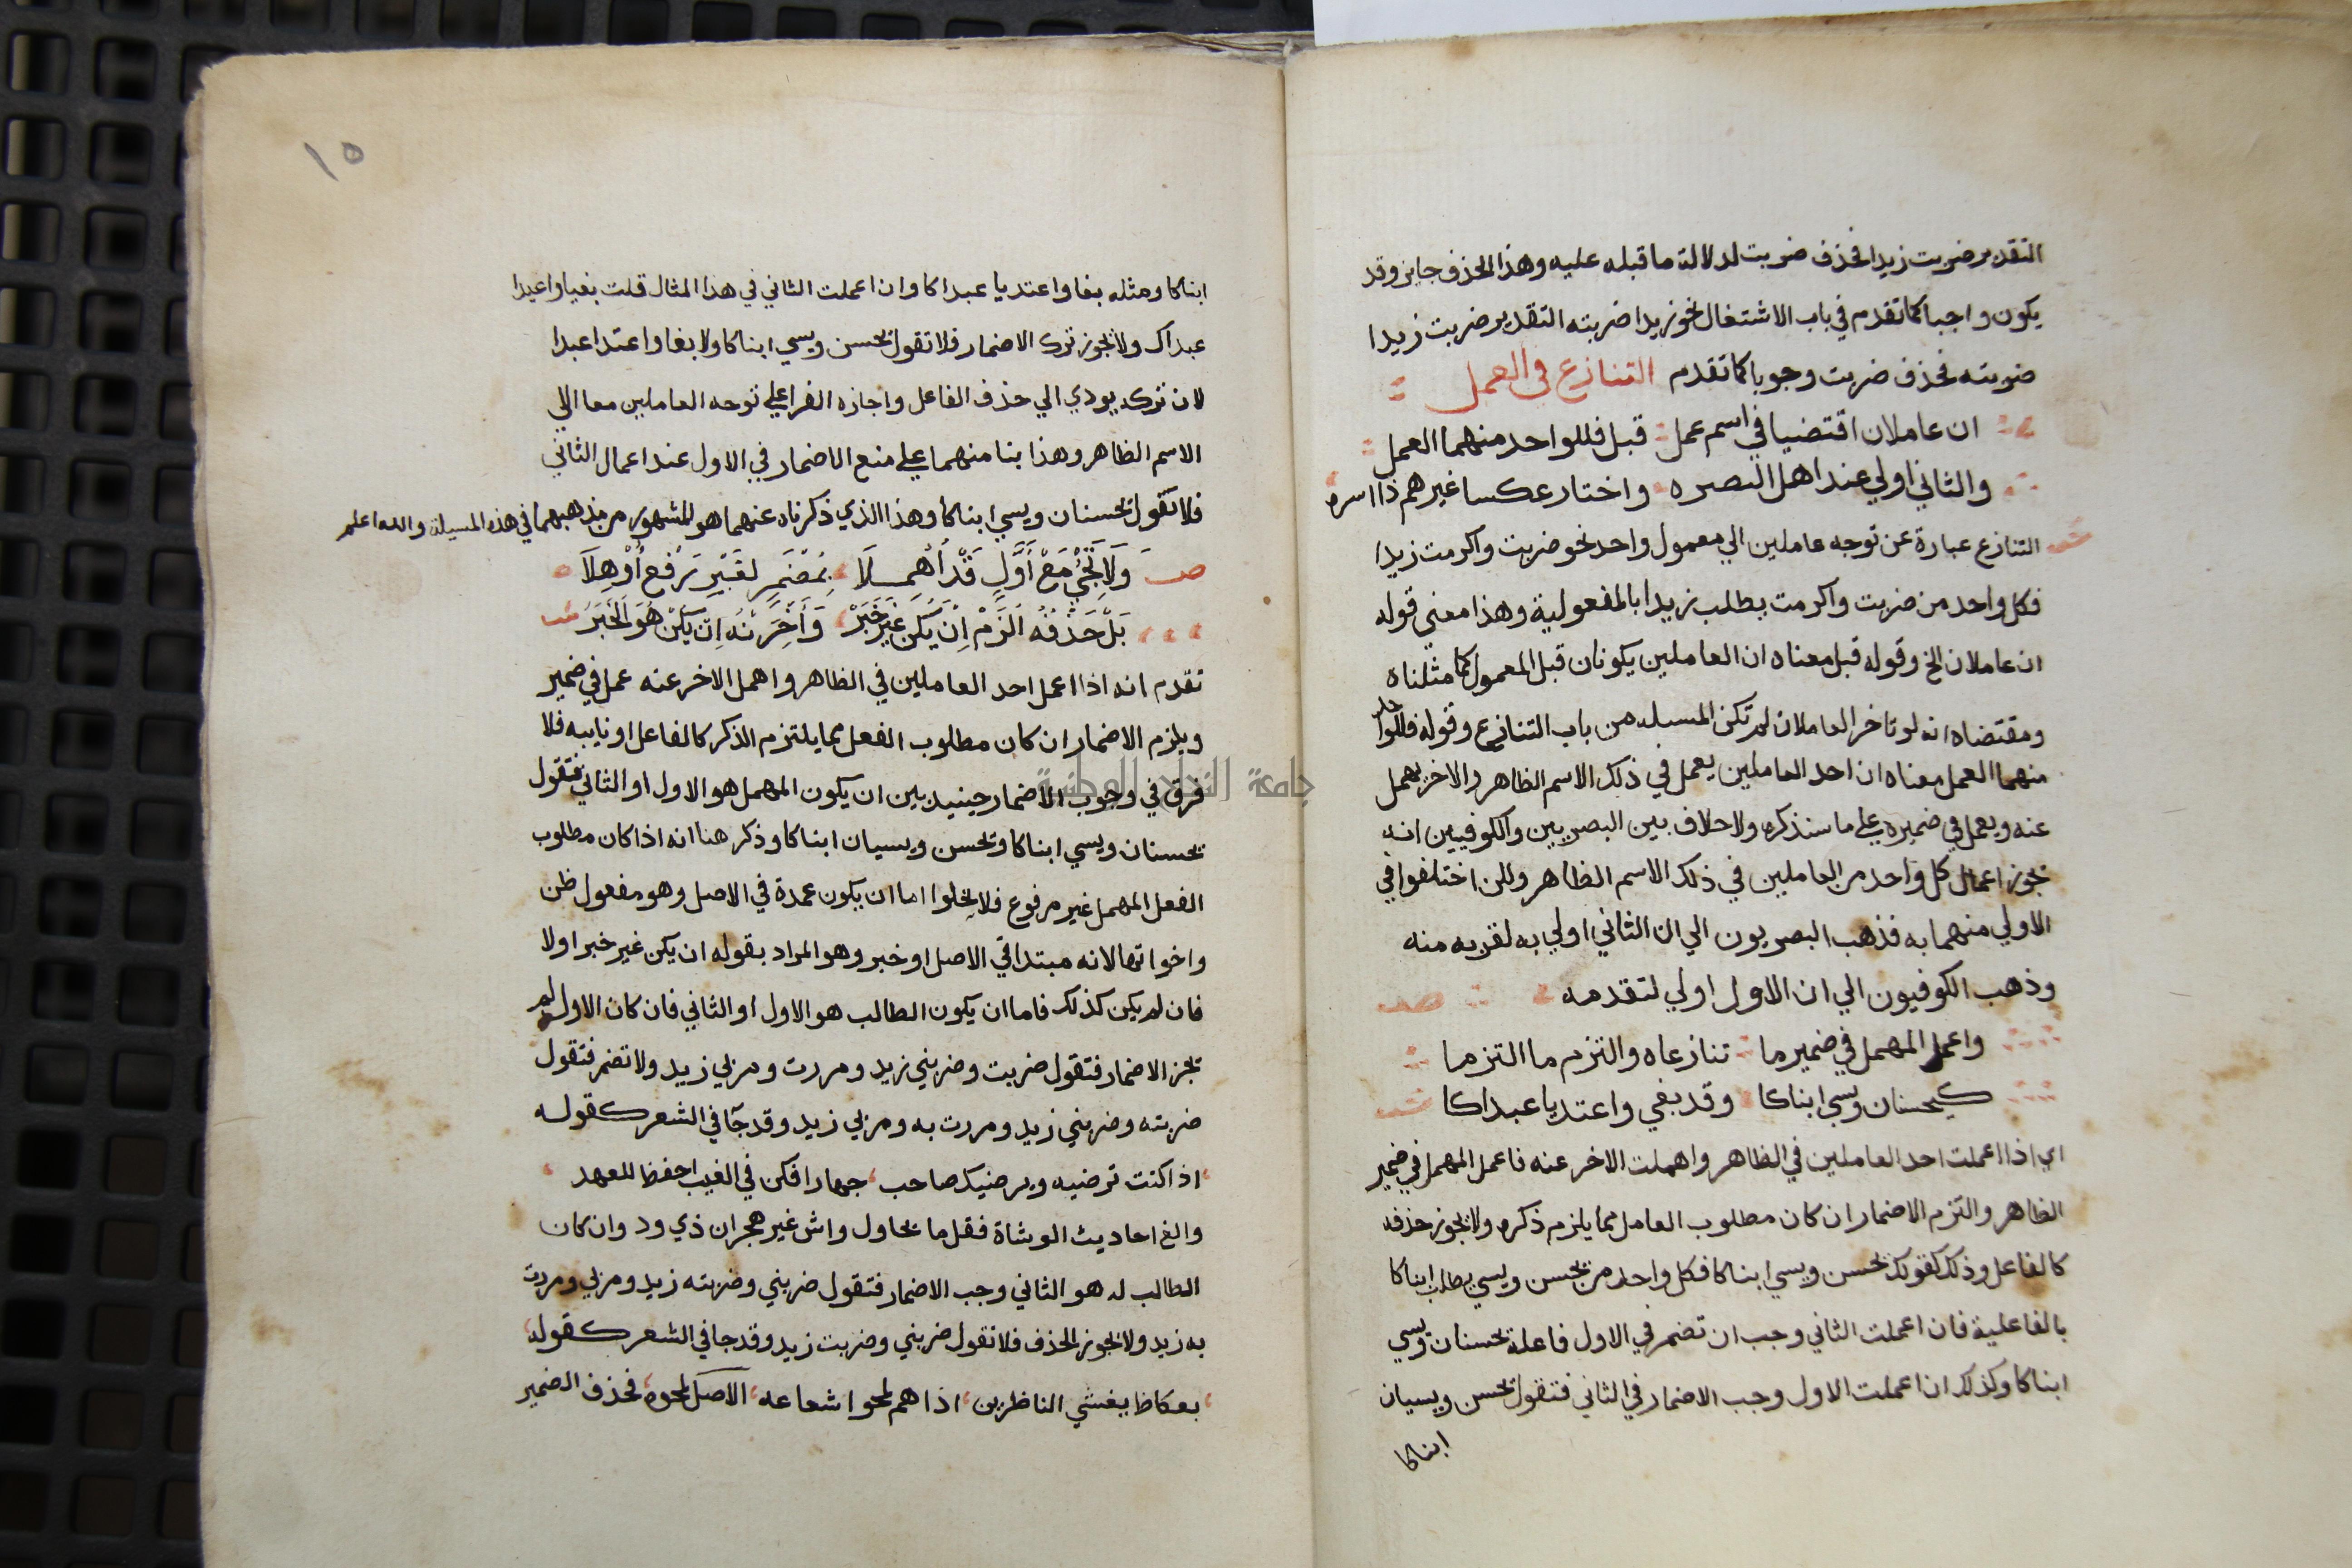 التقدير ضربت زيدا فحذف ضربت لدلالة ما قبله عليه وهذا الحذف جايز وقد
يكون واجبا كما تقدم في باب الاشتغال نحو زيدا ضربته التقدير ضربت زيدا
ضربته فحذف ضربت وجوبا كما تقدم التنازع في العمل
ان عاملان اقتضيا في اسم عمل قبل فللواحد منهما العمل
والثاني اولي عند اهل البصره واختار عكسا غيرهم ذا اسره
ش التنازع عبارة عن توجه عاملين الي معمول واحد نحو ضربت واكرمت زيدا
فكل واحد من ضربت واكرمت يطلب زيدا بالمفعولية وهذا معني قوله
ان عاملان الخ وقوله قبل معناه ان العاملين يكونان قبل المعمول كما مثلناه
ومقتضاه انه لو تاخر العاملان لم تكن المسله من باب التنازع وقوله فللواحد
منهما العمل معناه ان احد العاملين يعمل في ذلك الاسم الظاهر والاخر يهمل
عنه ويعمل في ضميره علي ما سنذكره ولا خلاف بين البصريين والكوفيين انه
يجوز اعمال كل واحد من العاملين في ذلك الاسم الظاهر ولكن اختلفوا في
الاولي منهما به فذهب البصريون الي ان الثاني اولي به لقربه منه
وذهب الكوفيون الي ان الاول اولي لتقدمه ص
واعمل المهمل في ضمير ما تنازعاه والتزم ما التزما
كيحسنان ويسي ابناكا وقد بغي واعتديا عبداكا ش
اي اذا اعملت احد العاملين في الظاهر واهملت الاخر عنه فاعمل المهمل في ضمير
الظاهر والتزم الاضمار ان كان مطلوب العامل مما يلزم ذكره ولا يجوز حذفه
كالفاعل وذلك كقولك يحسن ويسي ابناكا فكل واحد من يحسن ويسي يطلب ابناكا
بالفاعلية فان اعملت الثاني وجب ان تضمر في الاول فاعله يحسنان ويسي
ابناكا وكذلك ان اعملت الاول وجب الاضمار في الثاني فتقول يحسن ويسيان
ابناكا
١٥
ابناكا ومثله بغا واعتديا عبداكا وان اعملت الثاني في هذا المثال قلت بغيا واعتدا
عبداك ولا يجوز ترك الاضمار فلا تقول يحسن ويسي ابناكا ولا بغا واعتدا عبدا
لان تركه يودي الي حذف الفاعل واجازه الفرا علي توجه العاملين معا الي
الاسم الظاهر وهذا بنا منهما علي منع الاضمار في الاول عند اعمال الثاني
فلا تقول يحسنان ويسي ابناكا وهذا الذي ذكرناه عنهما هو المشهور من مذهبهما في هذه المسيلة والله اعلم
ص وَلَا تَجِئْ مَعْ أَوَّلٍ قَدْ أُهْمِلَا بِمُضْمَرٍ لِغَيْرِ رَفْعٍ أُوْهِلَا
بَلْ حَذْفَهُ الْزَمْ إِنْ يَكُنْ غَيْرَ خَبَرْ وَأَخِّرَنْهُ إِنْ يَكُنْ هُوَ الْخَبَرُ ش
تقدم انه اذا اعمل احد العاملين في الظاهر واهمل الاخر عنه عمل في ضمير
ويلزم الاضمار ان كان مطلوب الفعل مما يلتزم الذكر كالفاعل او نايبه فلا
فرق في وجوب الاضمار حينيد بين ان يكون المهمل هو الاول او الثاني فتقول
يحسنان ويسي ابناكا ويحسن ويسيان ابناكا وذكر هنا انه اذا كان مطلوب
الفعل المهمل غير مرفوع فلا يخلوا اما ان يكون عمدة في الاصل وهو مفعول ظن
واخواتها لانه مبتدا في الاصل او خبر وهو المراد بقوله ان يكن غير خبر او لا
فان لم يكن كذلك فاما ان يكون الطالب هو الاول او الثاني فان كان الاول لم
يجز الاضمار فتقول ضربت وضربني زيد ومررت ومر بي زيد ولا تضمر فتقول
ضربته وضربني زيد ومررت به ومر بي زيد وقد جآ في الشعر كقوله
اذا كنت ترضيه ويرضيك صاحب جهارا فكن في الغيب احفظ للعهد
والغ احاديث الوشاة فقل ما يحاول واش غير هجران ذي ود وان كان
الطالب له هو الثاني وجب الاضمار فتقول ضربني وضربته زيد ومر بي ومررت
به زيد ولا يجوز الحذف فلا تقول ضربني وضربت زيد وقد جا في الشعر كقوله
بعكاظ يغشي الناظرين اذا هم لمحوا شعاعه الاصل لمحوه فحذف الضمير
جامعة النجاح الوطنية